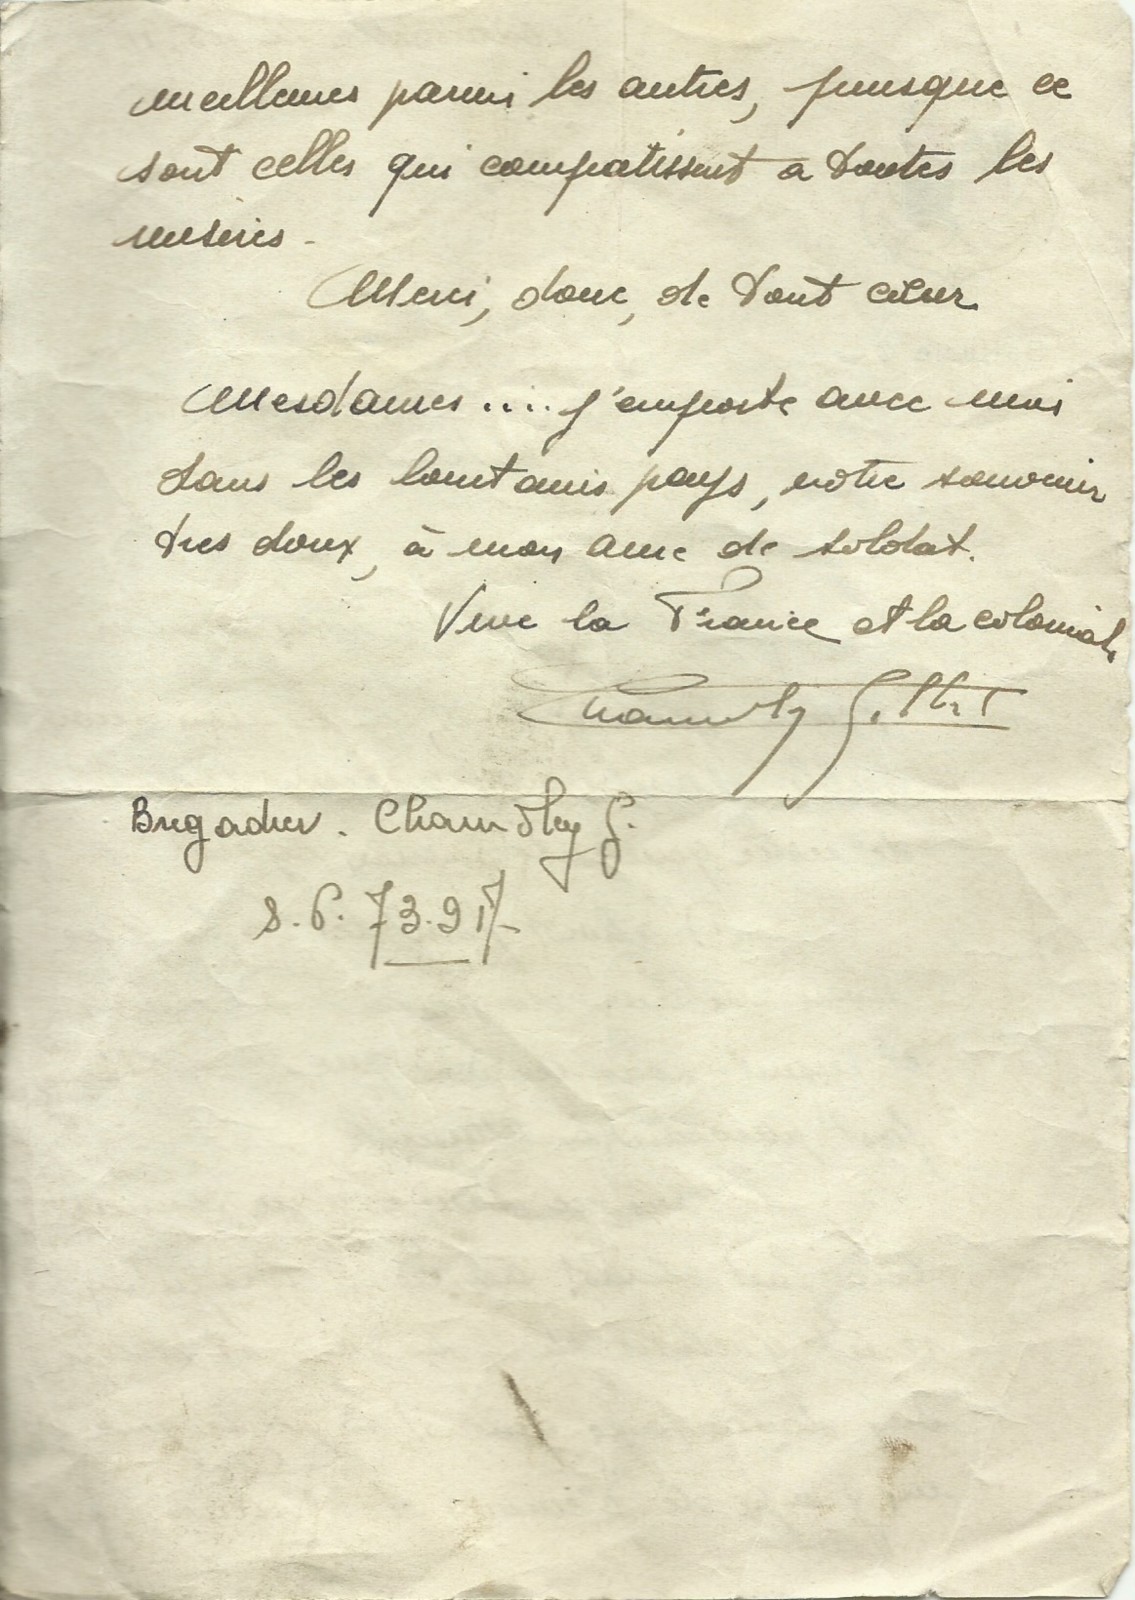 meilleures parmi les autres, puisque ce
sont celles qui compatissent a toutes les
misères -
Merci, donc, de tout cœur
Mesdames .... j'emporte avec moi
dans les lointains pays, votre souvenir
tres doux, à mon ame de soldat.
Vive la France et la coloniale
Gilbert
Brigadier. G.
S.P. 73.917-